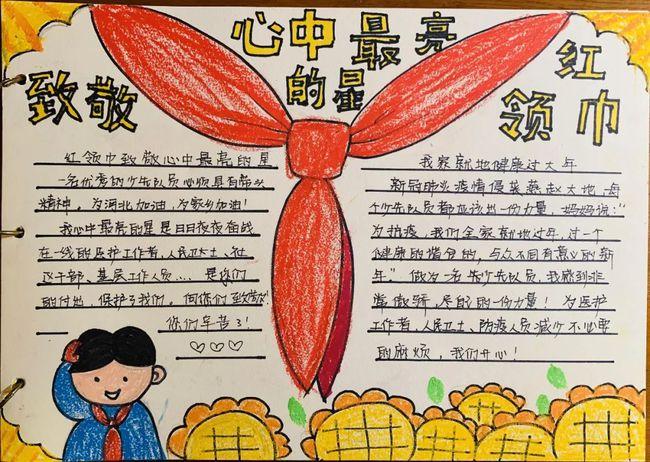 心中最亮
的星
致敬
红
领巾
红领巾致敬心中最亮的星
一名优秀的少先队员必须具有带头
精神。为河北加油,为家乡加油!
我心中最亮的星是日日夜夜奋战
在一线的医护工作者,人民卫士、社
区干部、基层工作人员.... 是你们
的付出,保护了我们。向你们致敬!
你们辛苦了!
我家就地健康过大年
新冠肺炎疫情侵袭燕赵大地,每
个少先队员都应该出一份力量,妈妈说:“
为抗疫,我们全家就地过年,过一个
健康的猪分的,与众不同有意义的新
年”做为一名 少先队员,我感到非
常傲骄,尽自己的一份力量!为医护
工作者,人民卫士、防疫人员减少不必要
的麻烦,我们开心!